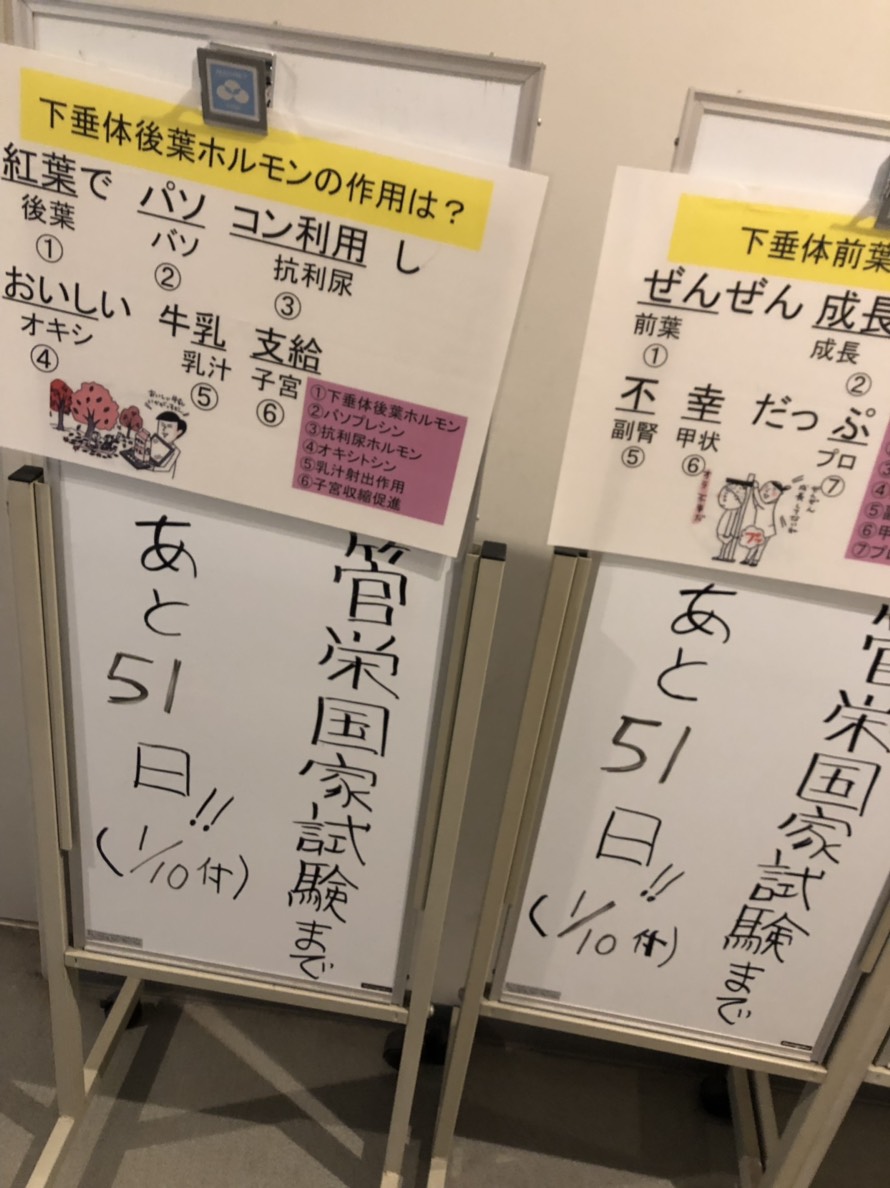 下垂体後葉ホルモンの作用は？
紅葉で パソ コン利用 し
後葉 バソ 抗利尿
① ② ③
おいしい 牛乳 支給
オキシ 乳汁 子宮
④ ⑤ ⑥
①下垂体後葉ホルモン
②バソプレシン
③抗利尿ホルモン
④オキシトシン
⑤乳汁射出作用
⑥子宮収縮促進
管栄国家試験まで
あと
51
日!!
(1/10付)
下垂体前葉
ぜんぜん 成長
前葉 成長
① ②
不 幸 だっ ぷ
副腎 甲状 プロ
⑤ ⑥ ⑦
管栄国家試験まで
あと
51
日!!
(1/10付)